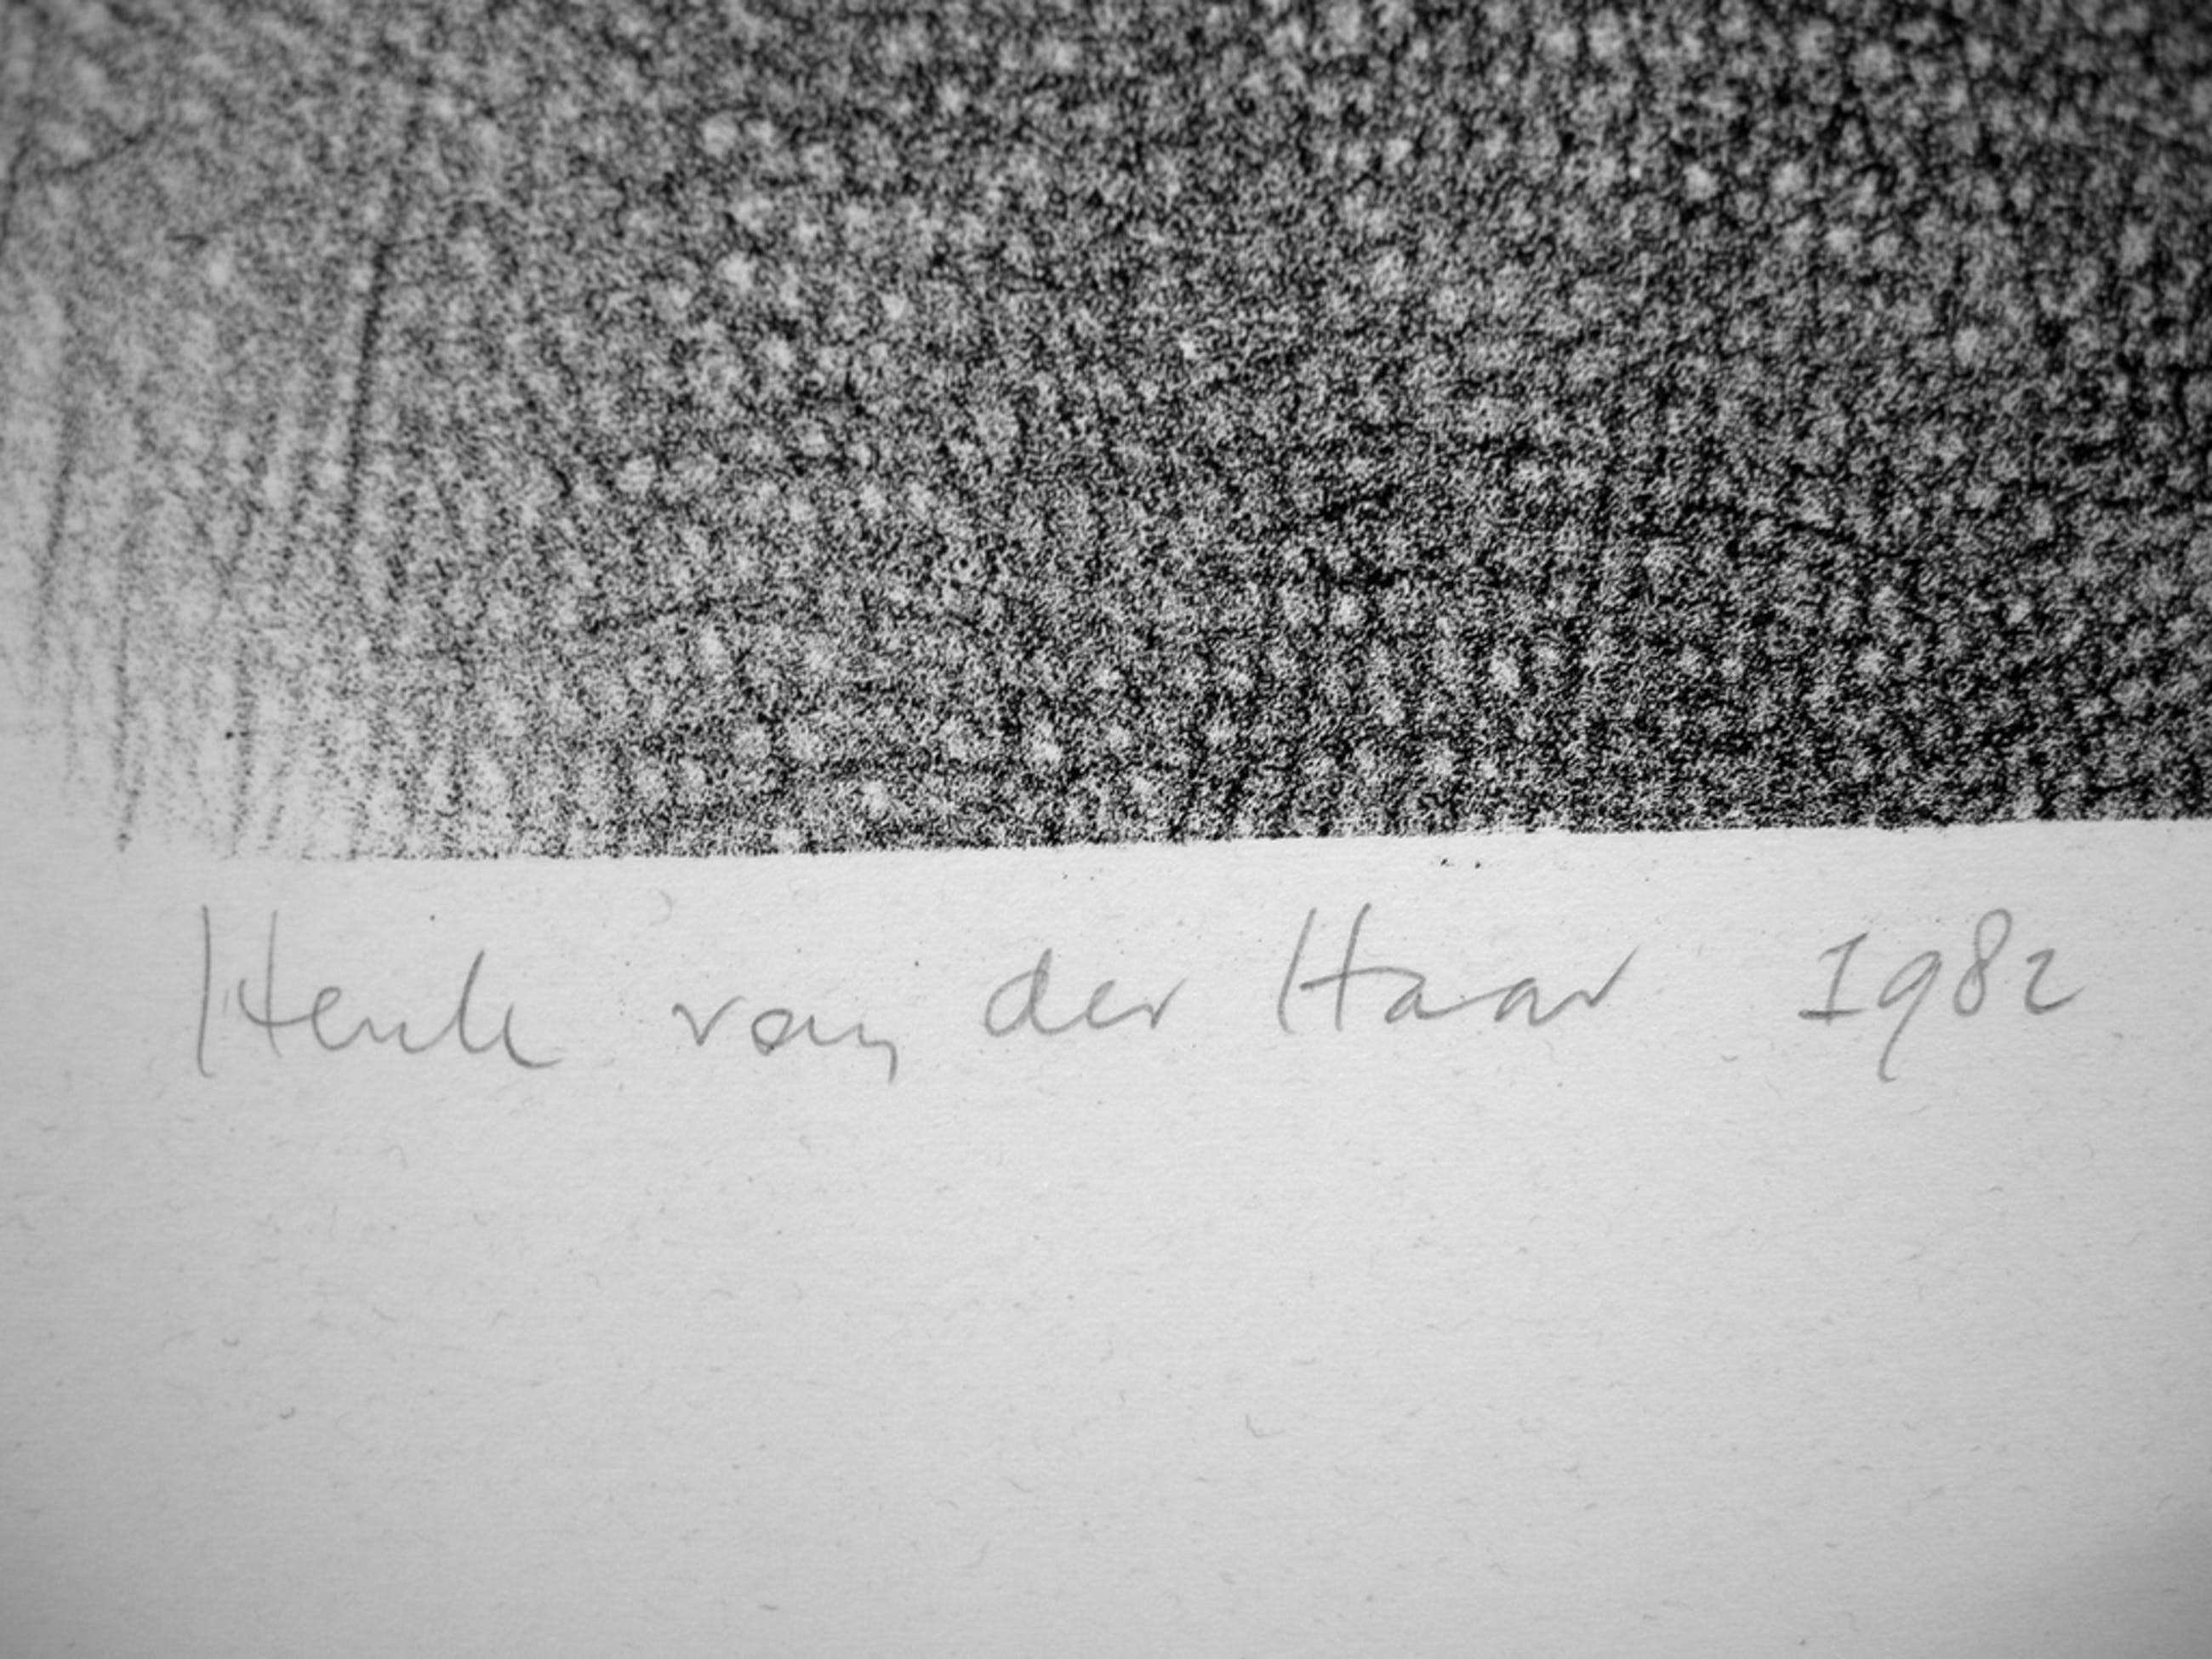 Henk van der Haar 1982